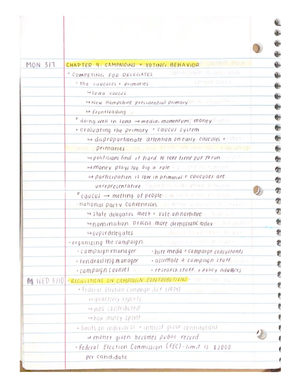 MON 3/7 CHAPTER 9: CAMPAIGNS + VOTING BEHAVIOR
* COMPETING FOR DELEGATES
- the caucuses + primaries
→ Iowa caucus
→ New Hampshire presidential primary
→ frontloading
* doing well in Iowa → media, momentum, money
- evaluating the primary + caucus system
→ disproportionate attention on early caucuses +
primaries
→ politicians find it hard to take time out to run
→ money plays too big a role
→ participation is low in primaries + caucuses are
unrepresentative
* caucus → meeting of people
national party convention
→ state delegates meet + vote on nominee
→ nomination process more democratic today
→ superdelegates
- organizing the campaign
- campaign manager - hire media + campaign consultants
- fundraising manager - assemble a campaign staff
- campaign counsel - research staff + policy advisors
WED 3/9 REGULATIONS ON CAMPAIGN CONTRIBUTIONS
- Federal Election Campaign Act (1974)
→ who contributed
→ how money spent
→ money given becomes public record
- Federal Election Commission (FEC) - limit is $2000
per candidate